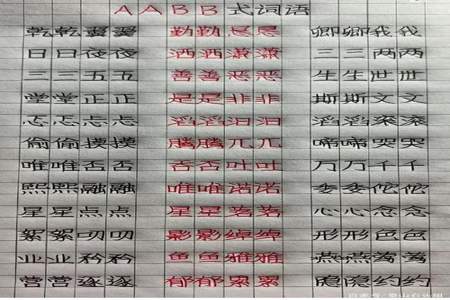 AABB式词语
乾乾翼翼 勤勤恳恳 卿卿我我
日日夜夜 洒洒潇潇 三三两两
三三五五 善善恶恶 生生世世
堂堂正正 是是非非 斯斯文文
忐忐忑忑 滔滔汩汩 滔滔滚滚
偷偷摸摸 腾腾兀兀 啼啼哭哭
唯唯否否 吞吞吐吐 万万千千
熙熙融融 唯唯诺诺 委委佗佗
星星点点 星星落落 心心念念
絮絮叨叨 影影绰绰 形形色色
业业矜矜 鱼鱼雅雅 燕燕莺莺
营营逐逐 郁郁累累 隐隐约约